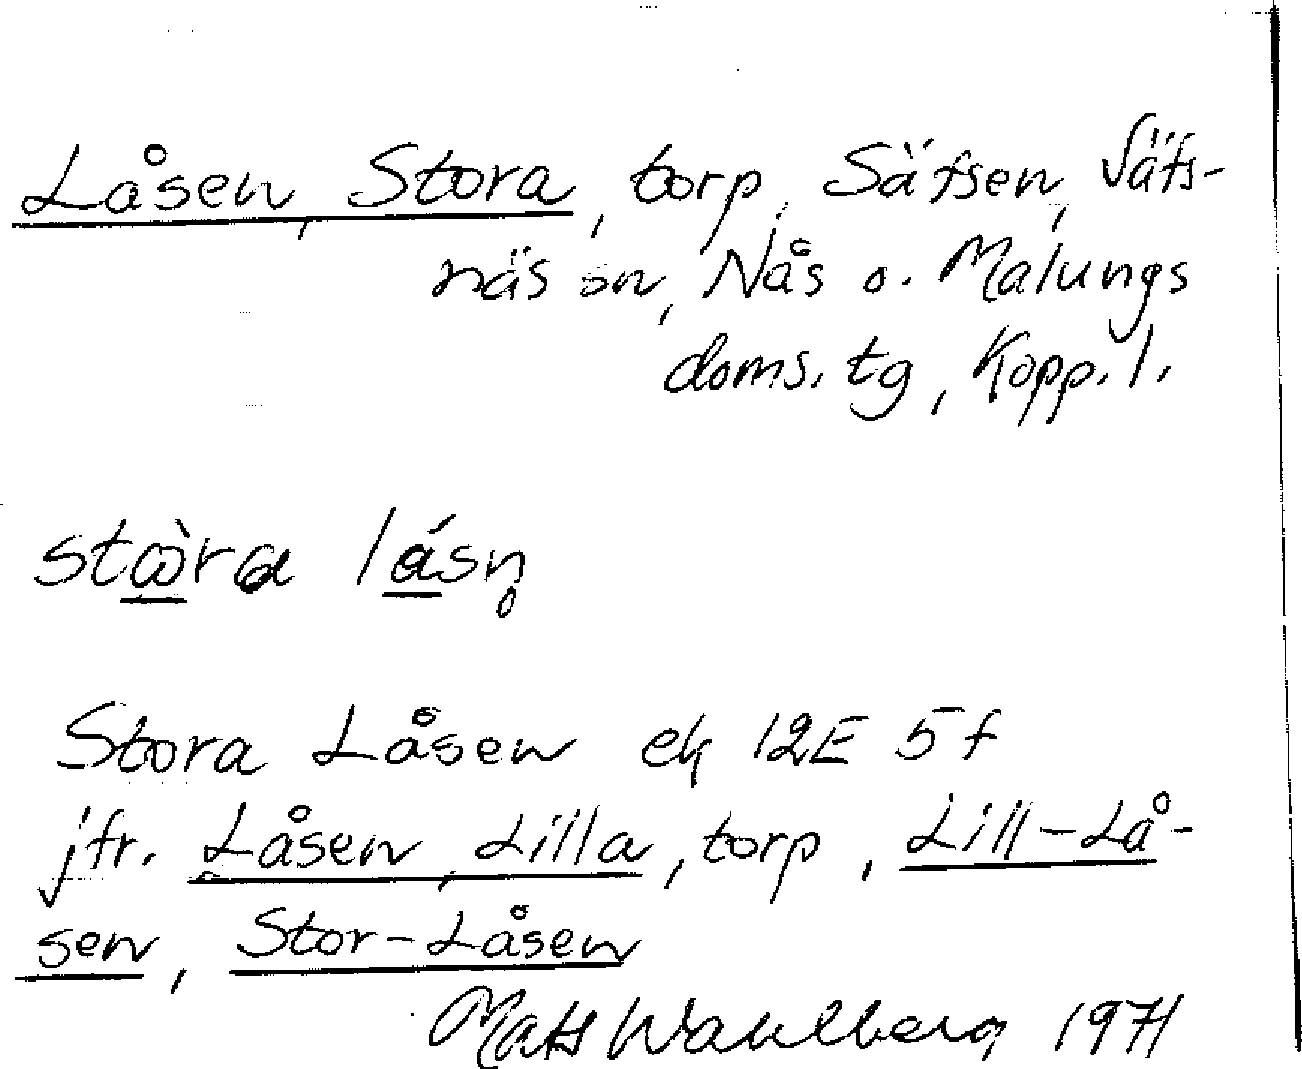 Låsen, Stora, torp, Säfsen, Säfs-
näs sn, Nås o. Malungs
doms. tg, Kopp. l.
stɷ̀ra lásn̥
Stora Låsen ek 12E 5f
jfr. Låsen, Lilla, torp, Lill-Lå-
sen, Stor-Låsen
Mats Wahlberg 1971